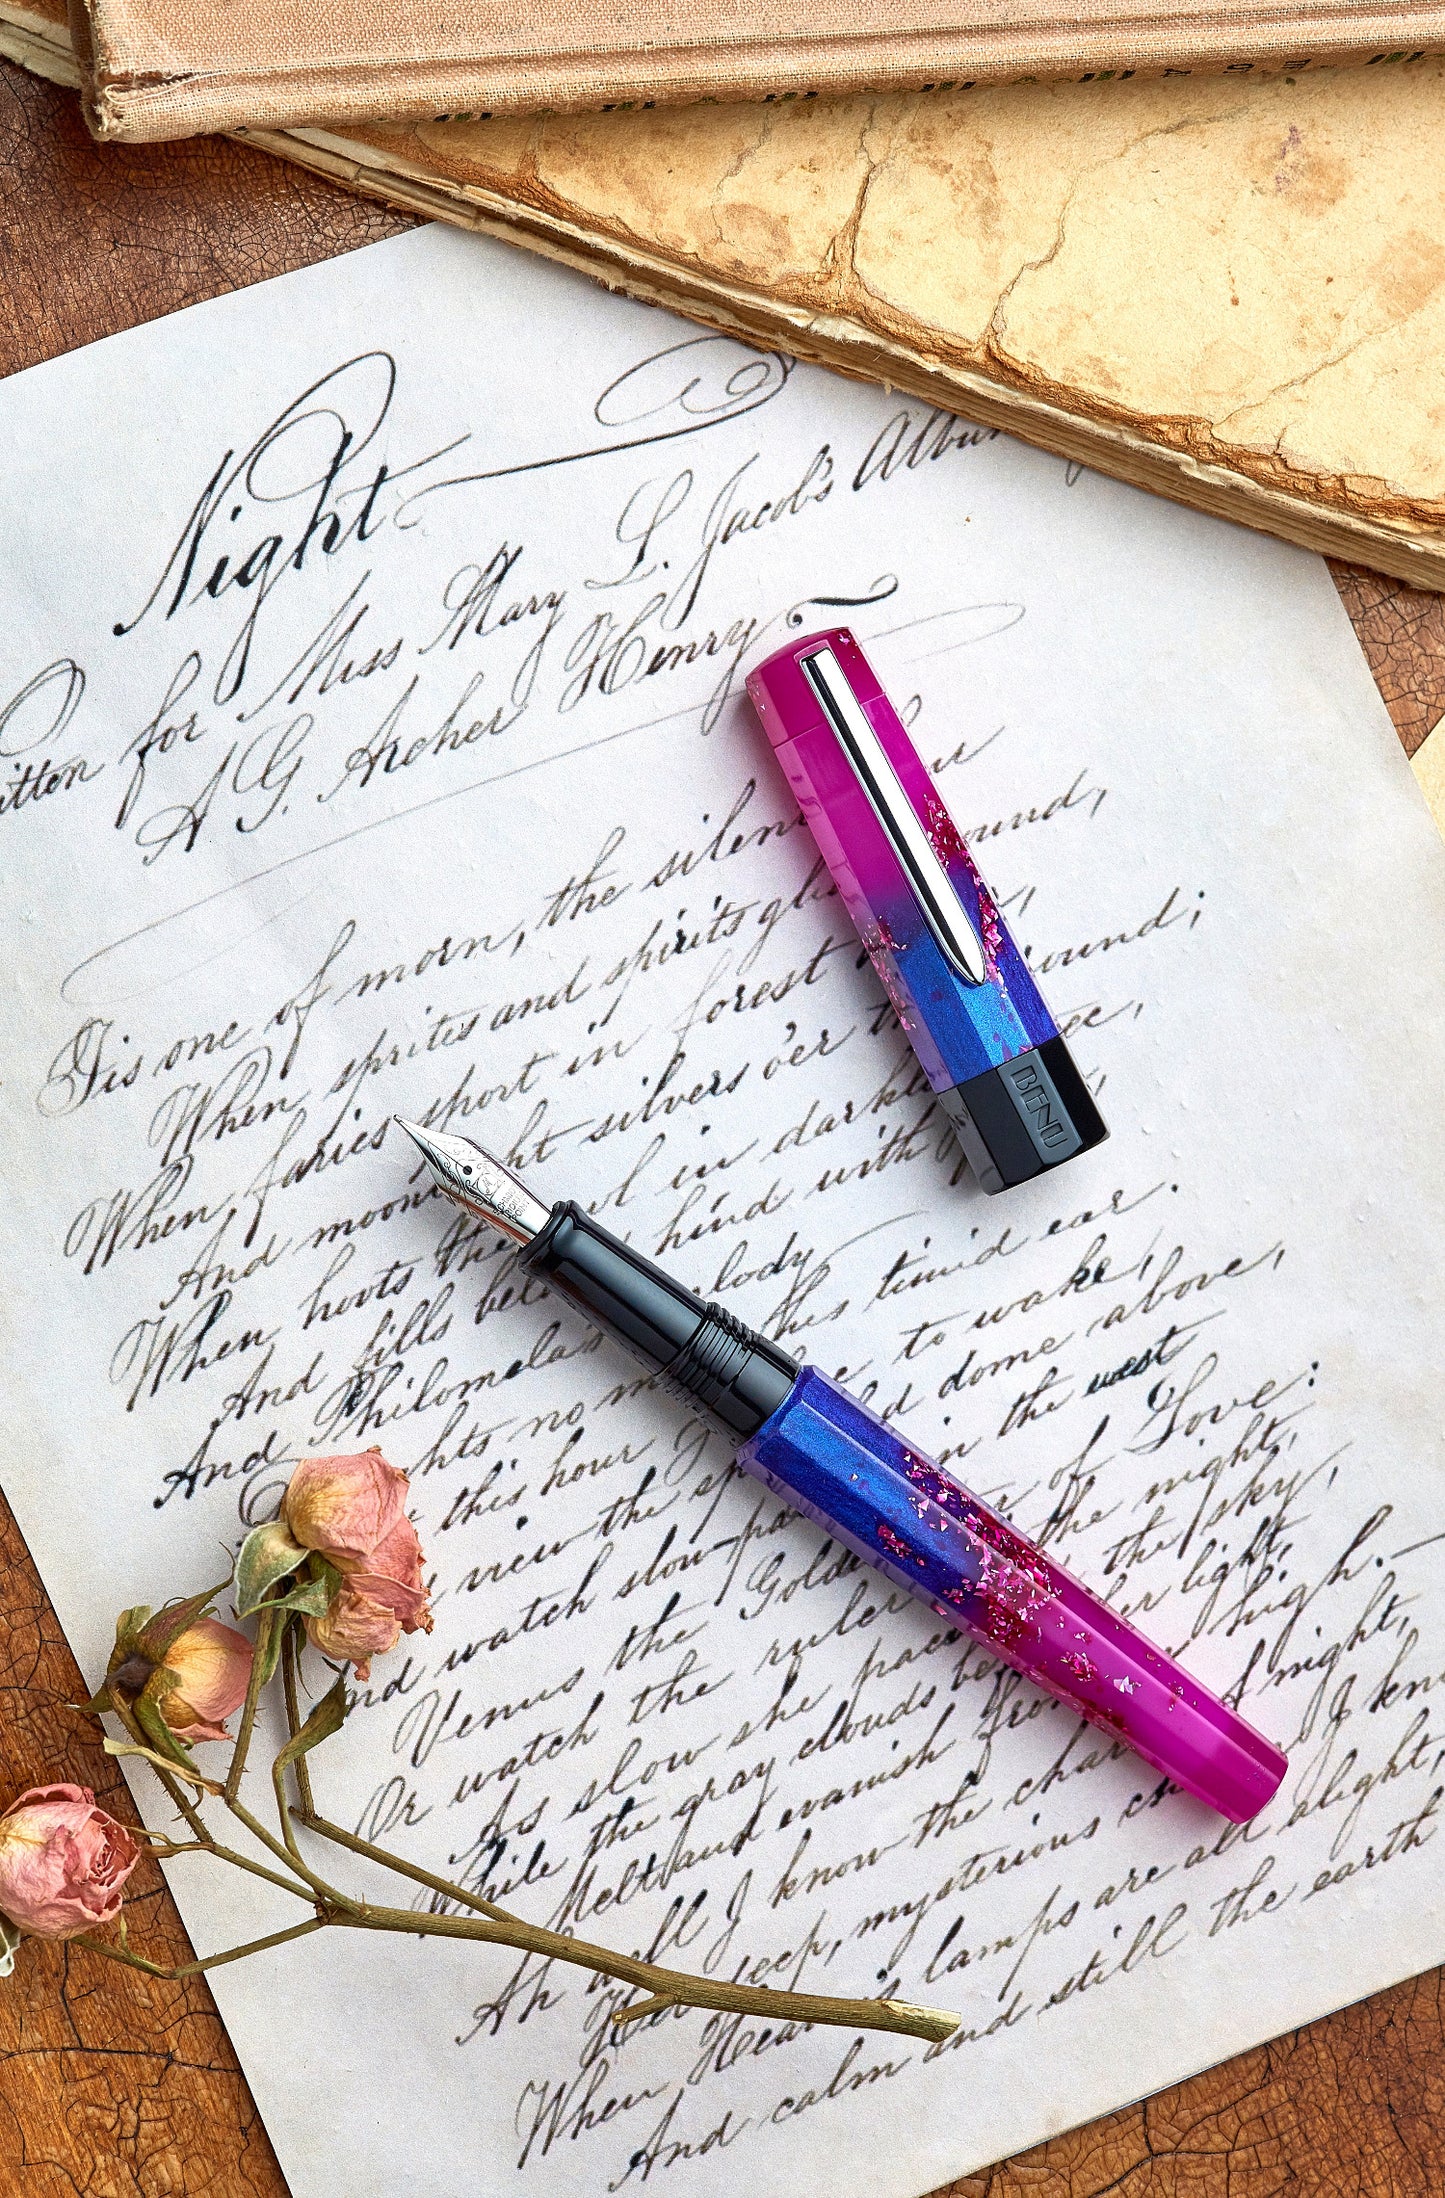 Night
itten for Miss Mary L. Jacob's Album
A G. Archer Henry
'Tis one of morn, the silent
When sprites and spirits ound,
When faries sport in forest
And moon ht silvers o'er th ound;
When hoots the wl in darkl ee,
And fills bel hind with
And Philomela's lody
ghts no m this timid ear.
this hour to wake,
view the sp d dome above,
nd watch slow-pa in the west
Venus the Golde of Love:
Or watch the ruler the night,
As slow she pace the sky,
While the gray clouds be her light,
Melt and vanish from high.—
Ah well I know the cha f night,
Her deep, mysterious I kn
When Heav's lamps are all alight,
And calm and still the earth
BENU